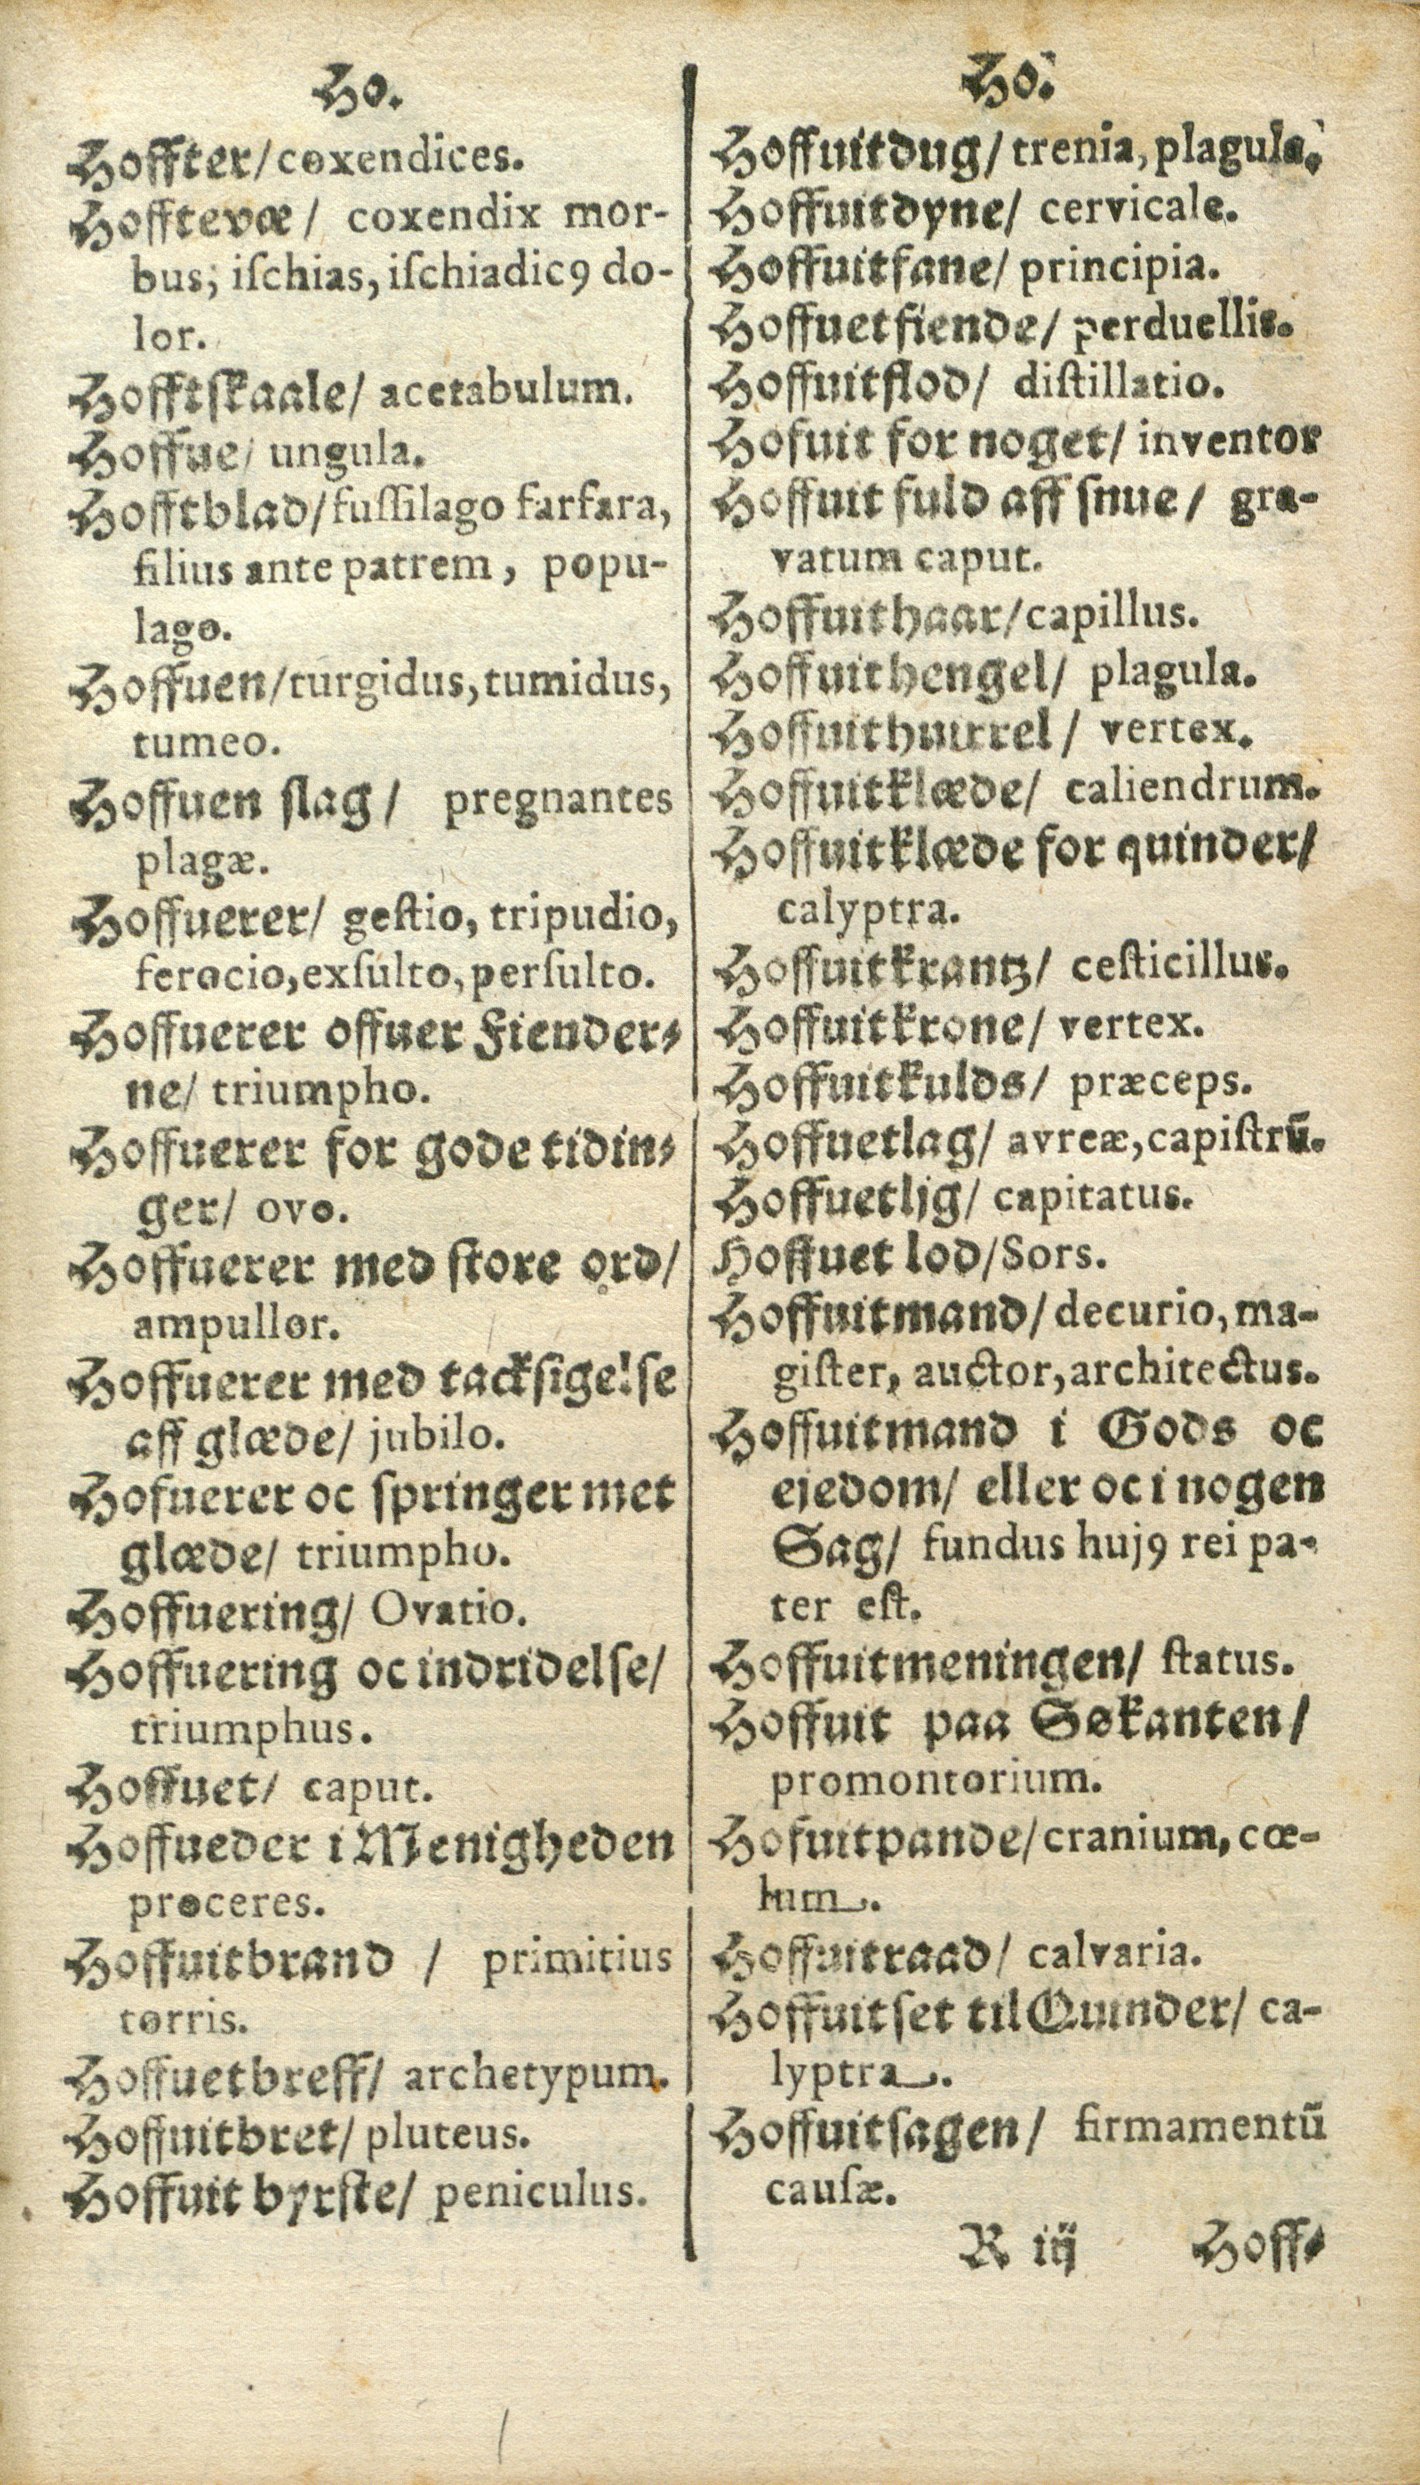 Ho.
Hoffter/coxendices.
Hofftevæ/ coxendix mor-
bus; iſchias, iſchiadicꝰ do-
lor.
Hofftſkaale/ acetabulum.
Hoffue/ ungula.
Hofftblad/fuſſilago farfara,
filius ante patrem, popu-
lago.
Hoffuen/turgidus, tumidus,
tumeo.
Hoffuen ſlag/ pregnantes
plagæ.
Hoffuerer/ geſtio, tripudio,
ferocio, exſulto, perſulto.
Hoffuerer offuer Fiender⸗
ne/ triumpho.
Hoffuerer for gode tidin⸗
ger/ ovo.
Hoffuerer med ſtore ord/
ampullor.
Hoffuerer med tackſigelſe
aff glæde/ jubilo.
Hofuerer oc ſpringer met
glæde/ triumpho.
Hoffuering/ Ovatio.
Hoffuering oc indridelſe/
triumphus.
Hoffuet/ caput.
Hoffueder i Menigheden
proceres.
Hoffuitbrand / primitius
torris.
Hoffuetbreff/ archetypum.
Hoffuitbret/ pluteus.
Hoffuit byrſte/ peniculus.
Ho.
Hoffuitdug/ trenia, plagula.
Hoffuitdyne/ cervicale.
Hoffuitfane/ principia.
Hoffuetfiende/ perduellis.
Hoffuitflod/ diſtillatio.
Hofuit for noget/ inventor
Hoffuit fuld aff ſnue/ gra-
vatum caput.
Hoffuithaar/capillus.
Hoffuithengel/ plagula.
Hoffuithuirrel/ vertex.
Hoffuitklæde/ caliendrum.
Hoffuitklæde for quinder/
calyptra.
Hoffuitkrantz/ ceſticillus.
Hoffuitkrone/ vertex.
Hoffuitkulds/ præceps.
Hoffuetlag/ avreæ, capiſtrū.
Hoffuetljg/ capitatus.
Hoffuet lod/Sors.
Hoffuitmand/ decurio, ma-
giſter, auctor, architectus.
Hoffuitmand i Gods oc
ejedom/ eller oc i nogen
Sag/ fundus hujꝰ rei pa-
ter eſt.
Hoffuitmeningen/ ſtatus.
Hoffuit paa Søkanten/
promontorium.
Hofuitpande/cranium, cœ-
lum.
Hoffuitraad/ calvaria.
Hoffuitſet til Quinder/ ca-
lyptra.
Hoffuitſagen/ firmamentū
cauſæ.
R iij Hoff⸗